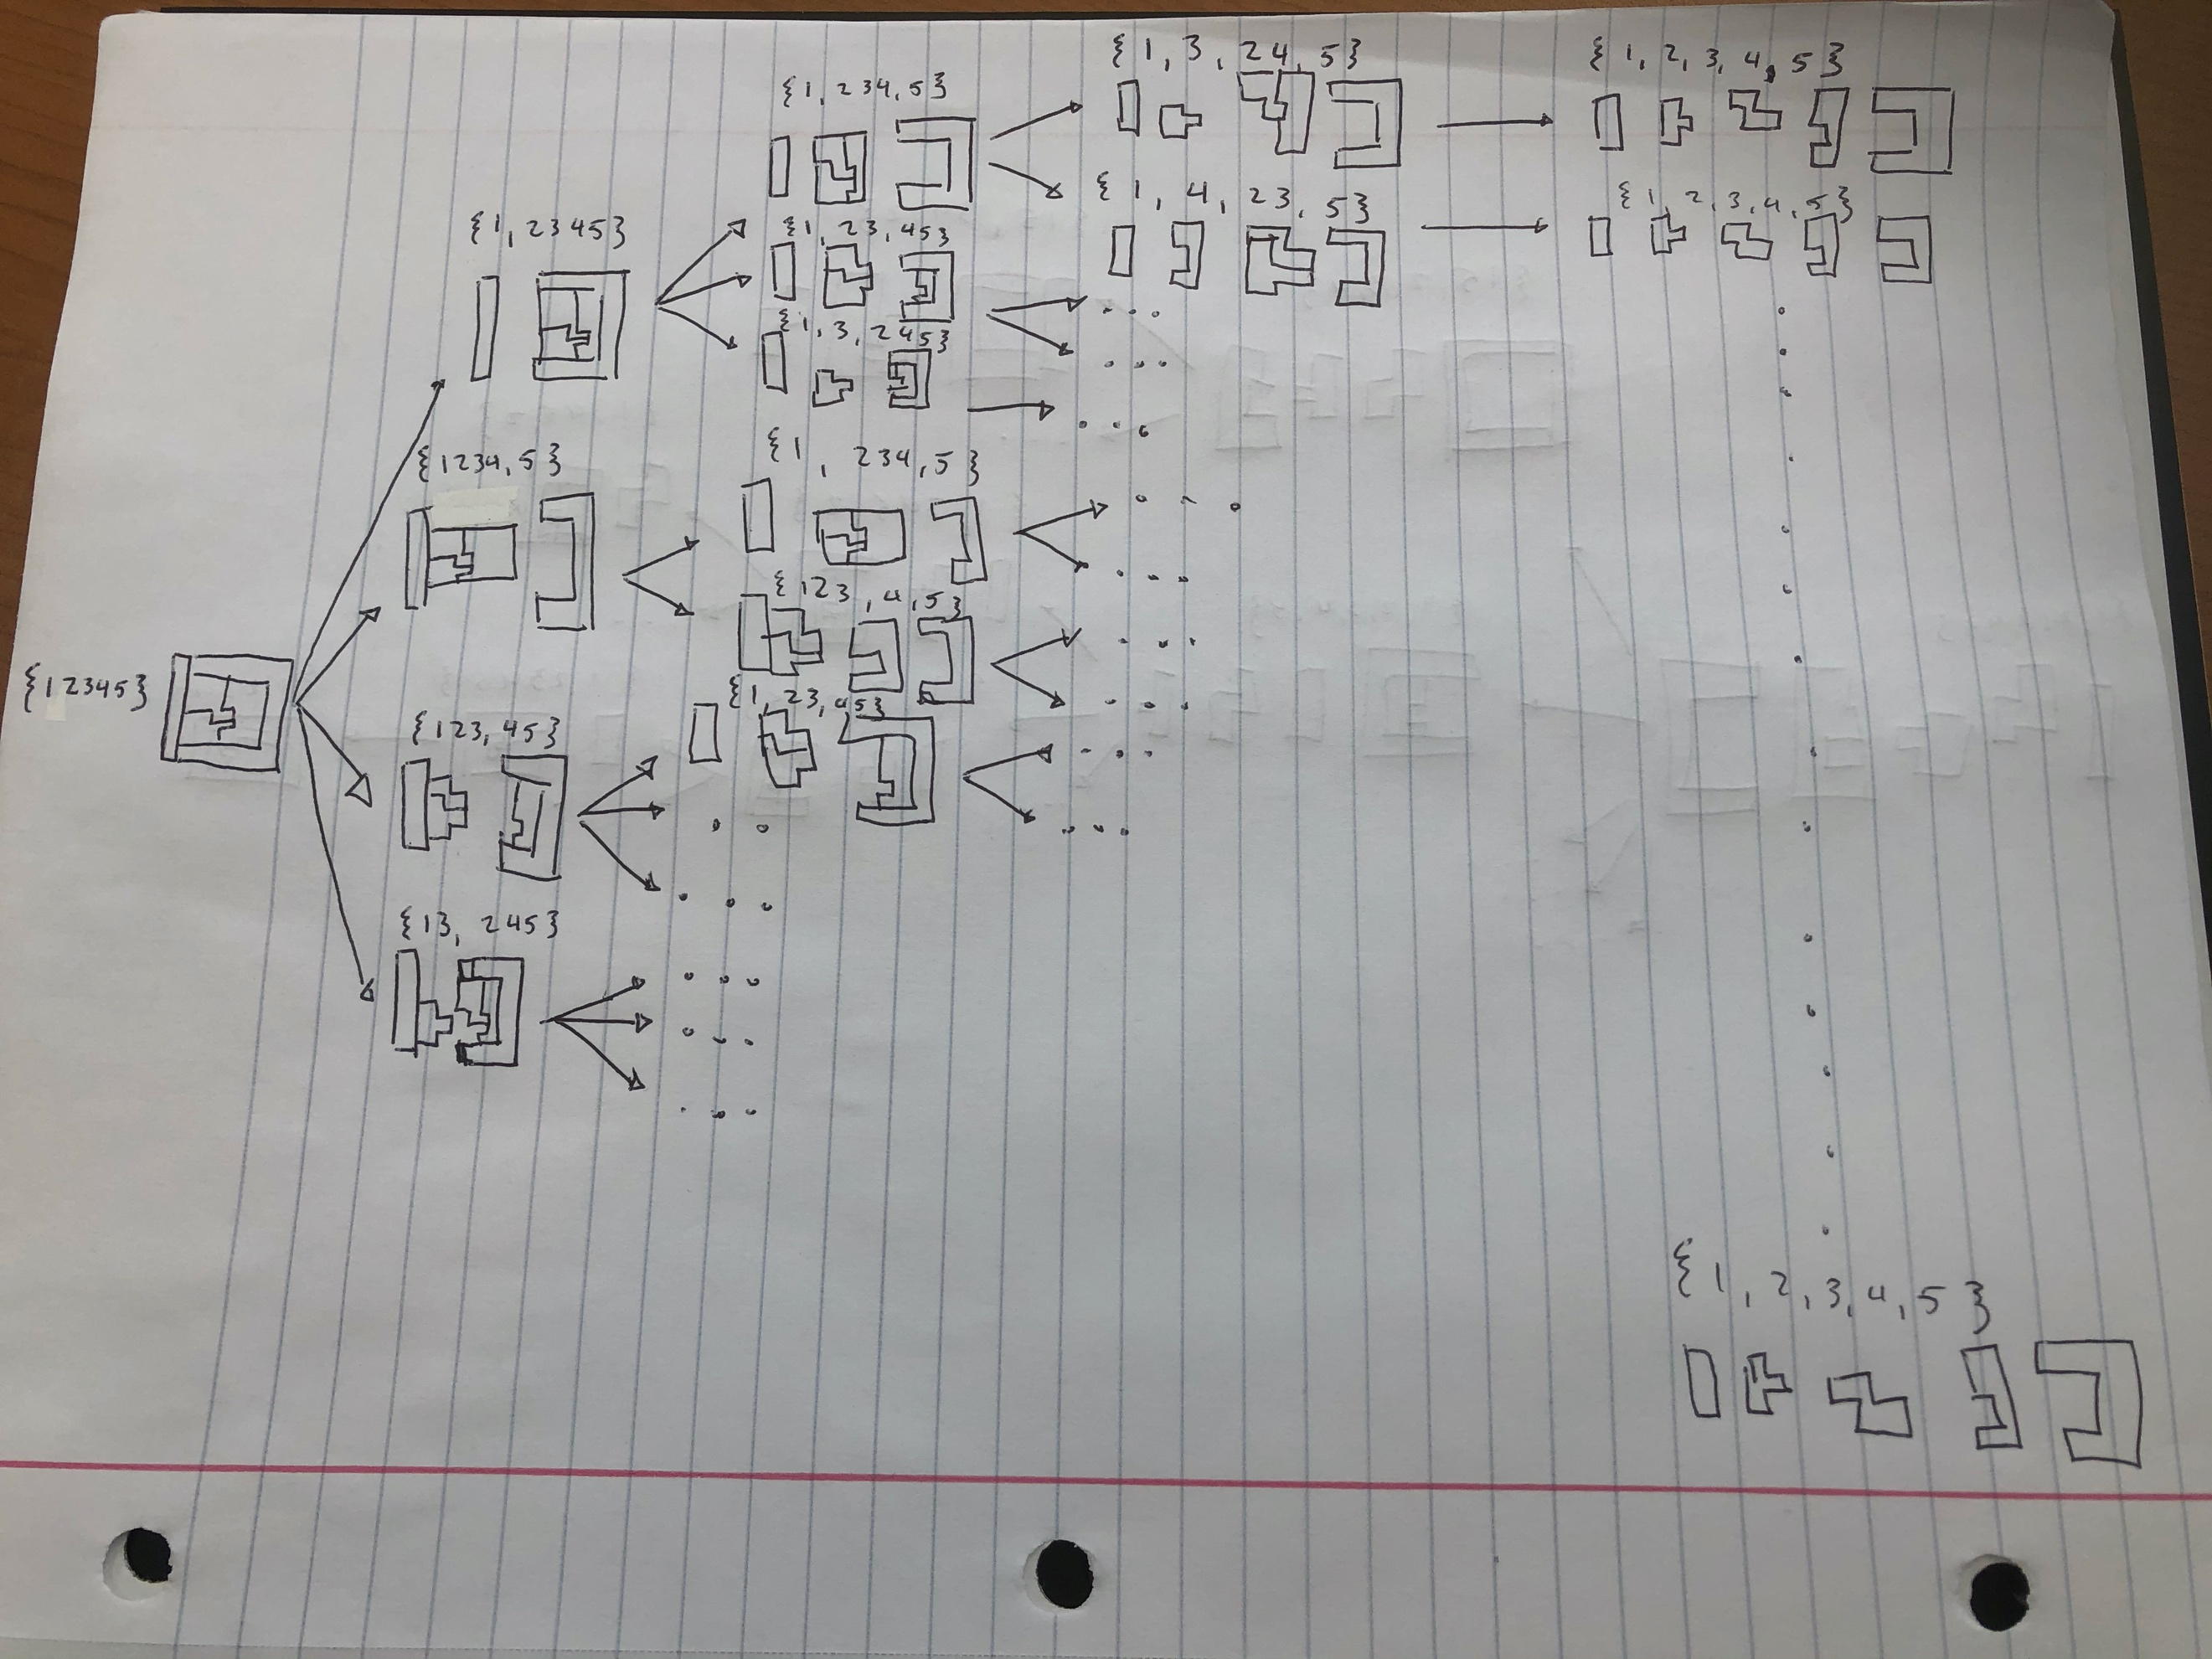 {12345}
{1,2345}
{1234,5}
{123,45}
{13,245}
{1,234,5}
{1,23,45}
{1,3,245}
{1,234,5}
{123,4,5}
{1,23,45}
{1,3,24,5}
{1,4,23,5}
{1,2,3,4,5}
{1,2,3,4,5}
{1,2,3,4,5}